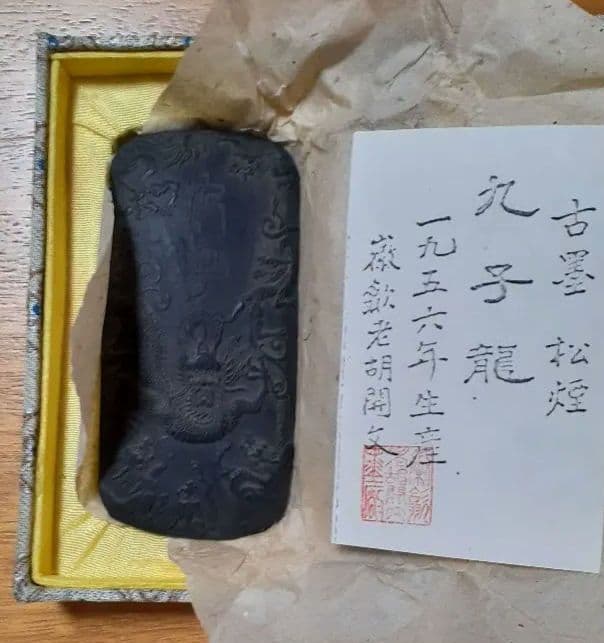 古墨 松煙
九子龍
一九五六年生産
徽歙老胡開文